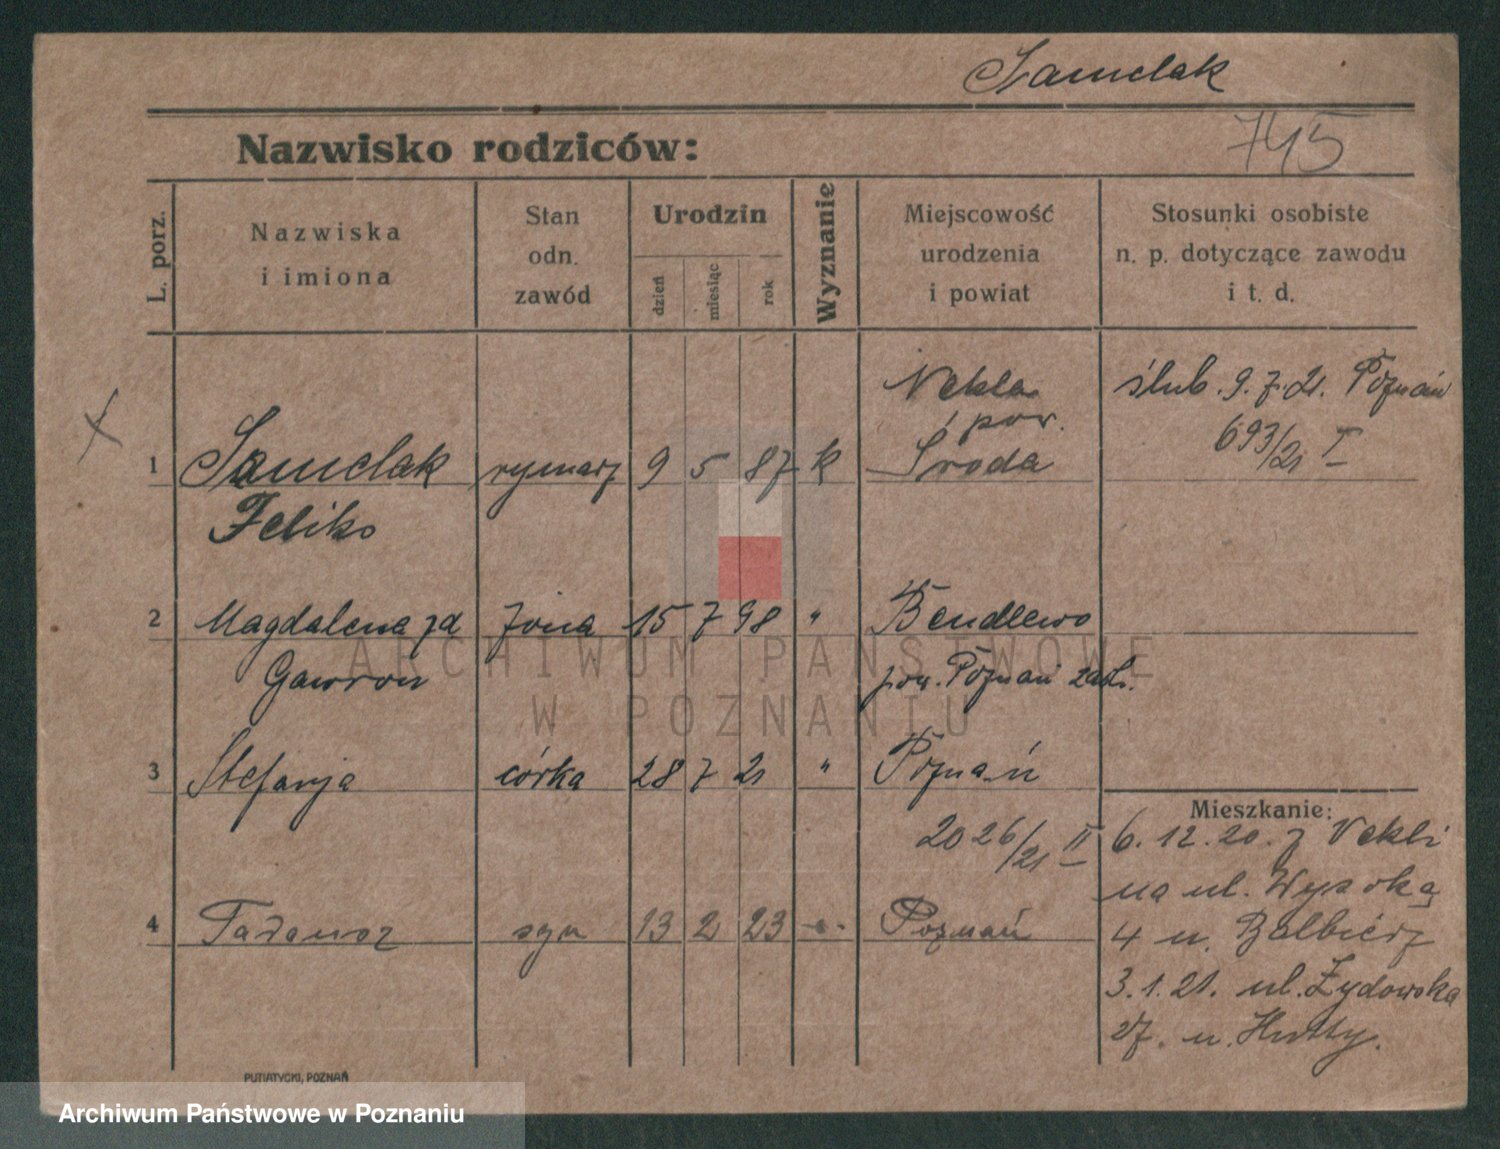 Samelak
745
Nazwisko rodziców:
L. porz.
Nazwiska
i imiona
Stan
odn.
zawód
Urodzin
dzień
miesiąc
rok
Wyznanie
Miejscowość
urodzenia
i powiat
Stosunki osobiste
n. p. dotyczące zawodu
i t. d.
Nekla
pow.
Środa
ślub. 9.7.21. Poznań
693/21 I
1 Samelak rymarz 9 5 87 k
Feliks
2 Magdalena zd żona 15 7 98 " Bendlewo
Gawron pow. Poznań zach.
3 Stefanja córka 28 7 21 " Poznań
2026/21 II
4 Tadeusz syn 13 2 23 -"- Poznań
Mieszkanie:
6.12.20. z Nekli
na ul. Wysoką
4 u. Balbierz
3.1.21. ul. Żydowska
27. u.
PUTIATYCKI, POZNAŃ
ARCHIWUM PAŃSTWOWE
W POZNANIU
Archiwum Państwowe w Poznaniu